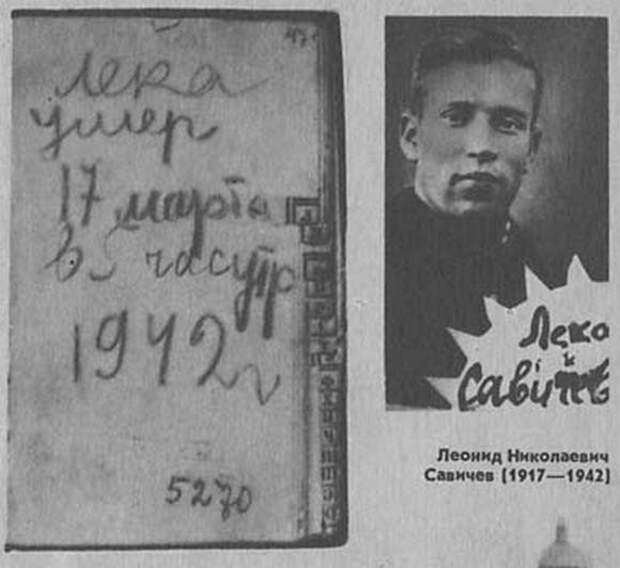 Лека
умер
17 марта
в 5 часутр
1942 г
5270
Лека
Савичев
Леонид Николаевич
Савичев [1917—1942]